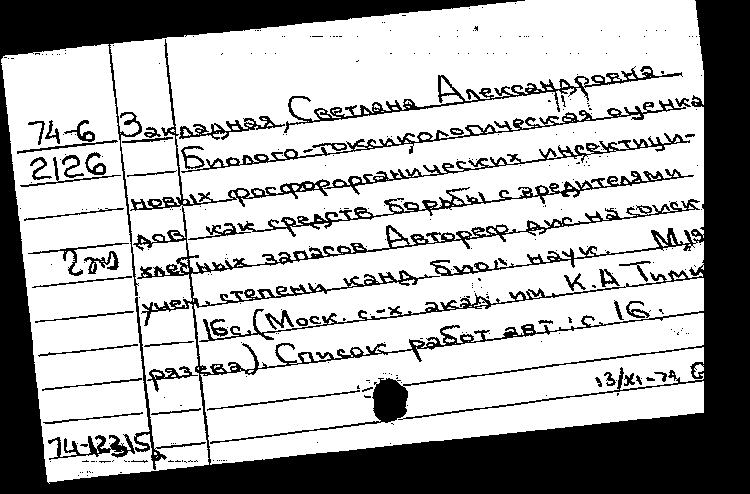 Закладная, Светлана Александровна.
74-6
2126
Биолого-токсикологическая оценка
новых фосфорорганических инсектици-
дов как средств борьбы с вредителями
хлебных запасов Автореф. дис. на соиск.
учен. степени канд. биол. наук. М., 197
16 с. (Моск. с.-х. акад. им. К.А. Тими
рязева). Список работ авт.: с. 16.
13/XI-74
74-12315